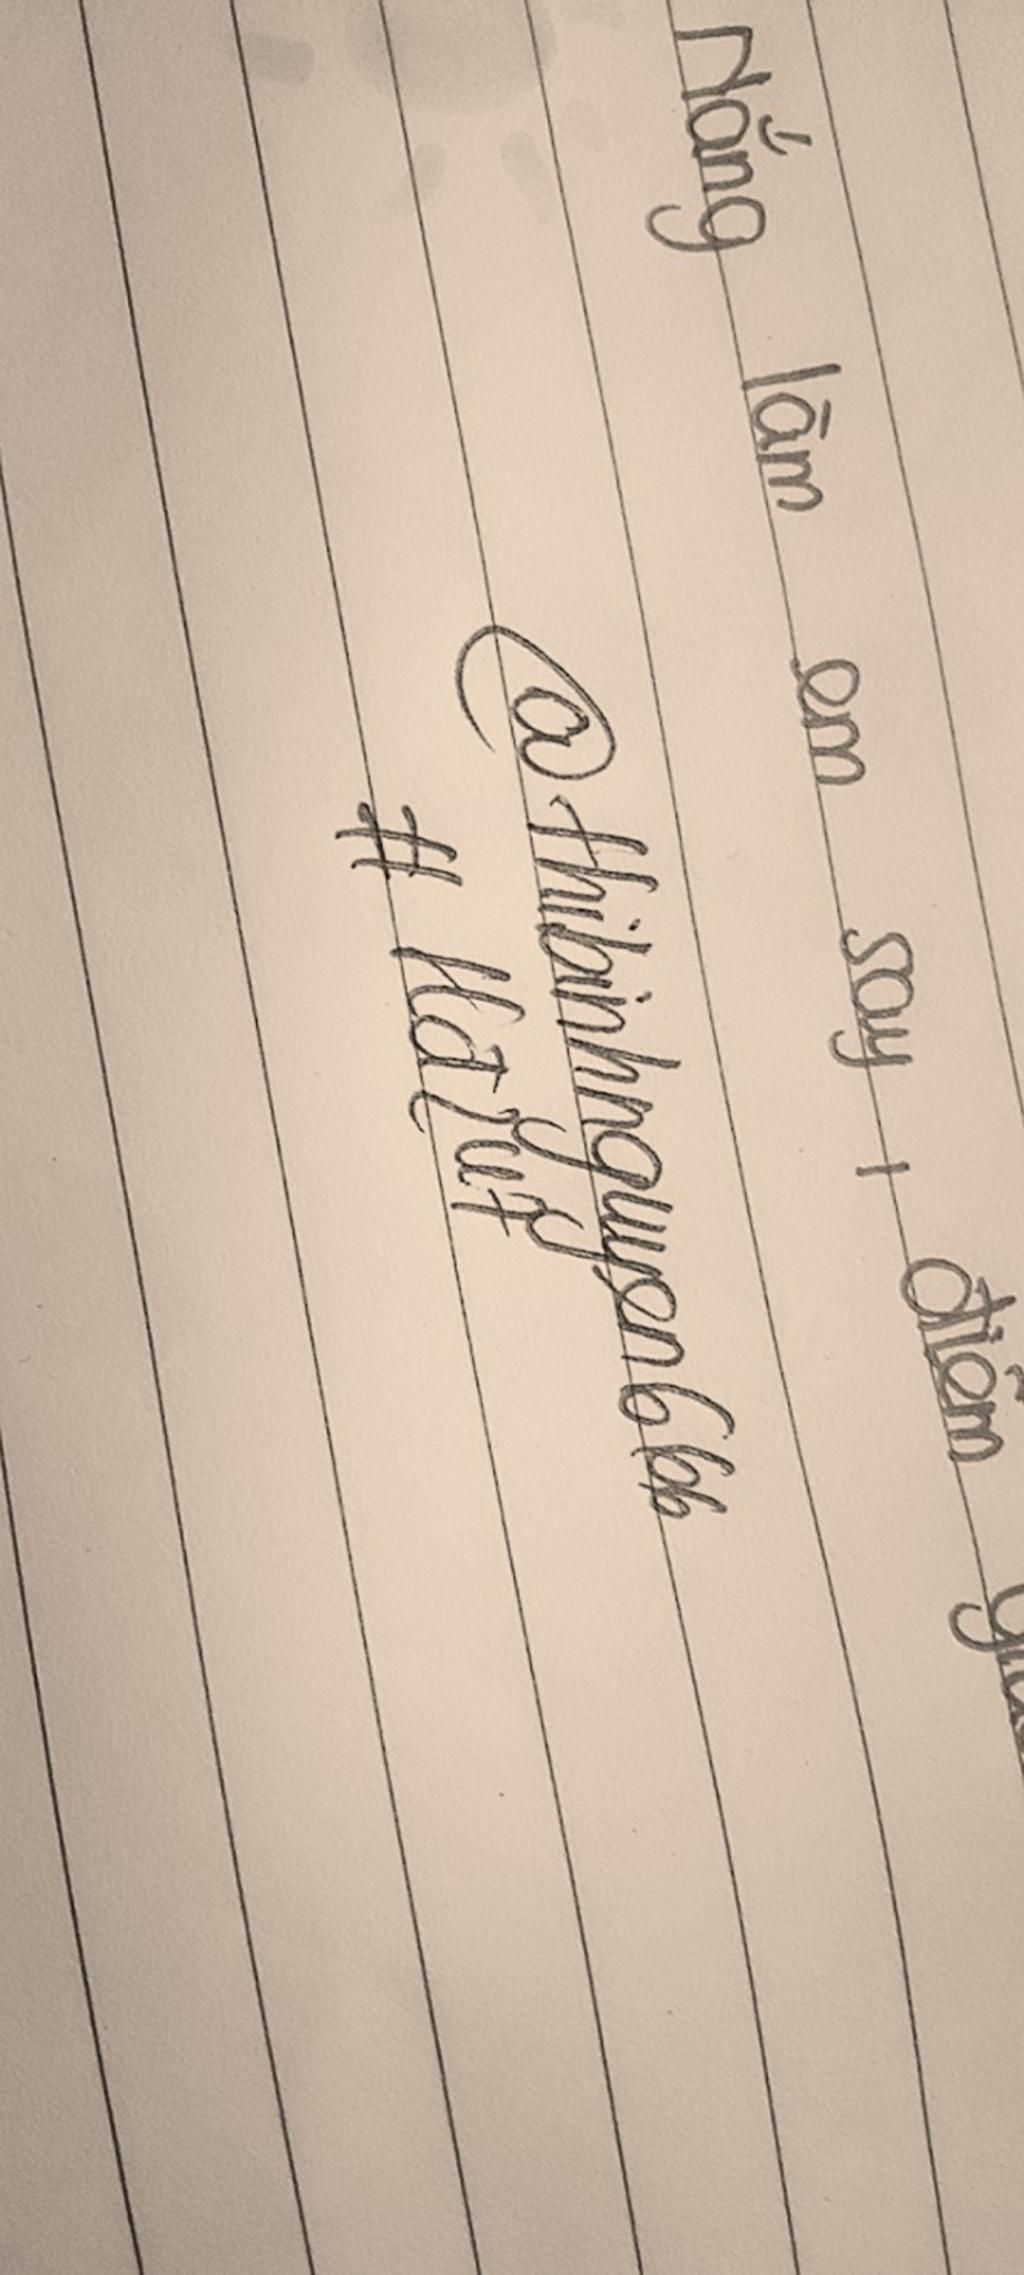 Nắng làm em say 1 điểm
@thibinhnguyen666
#